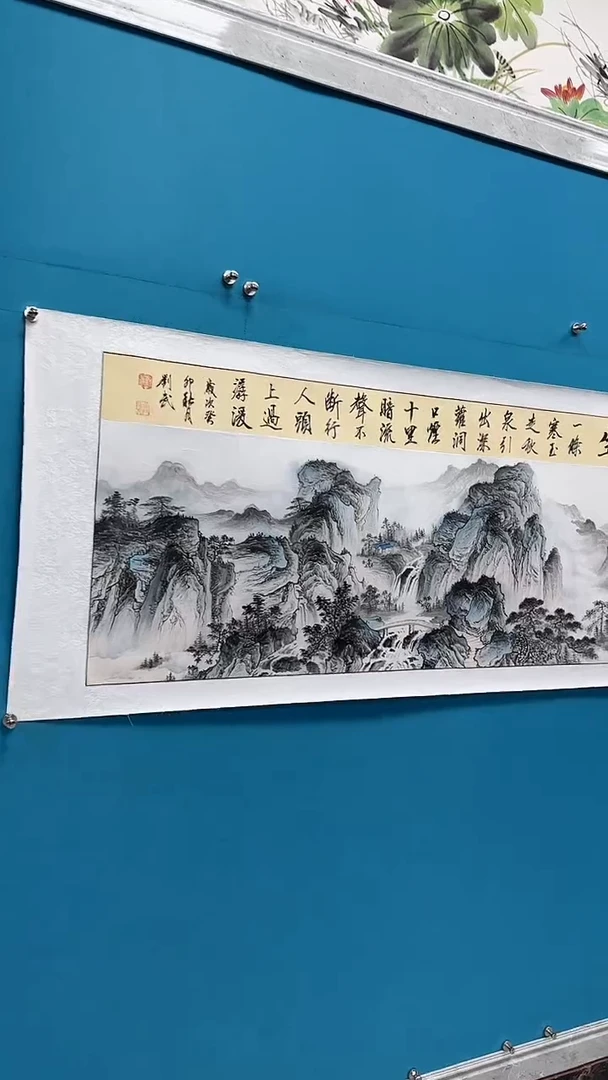 一條
寒玉
走秋
泉引
出深
蘿洞
口煙
十里
暗流
聲不
斷行
人頭
上過
潺湲
歲次癸
卯秋月
劉武